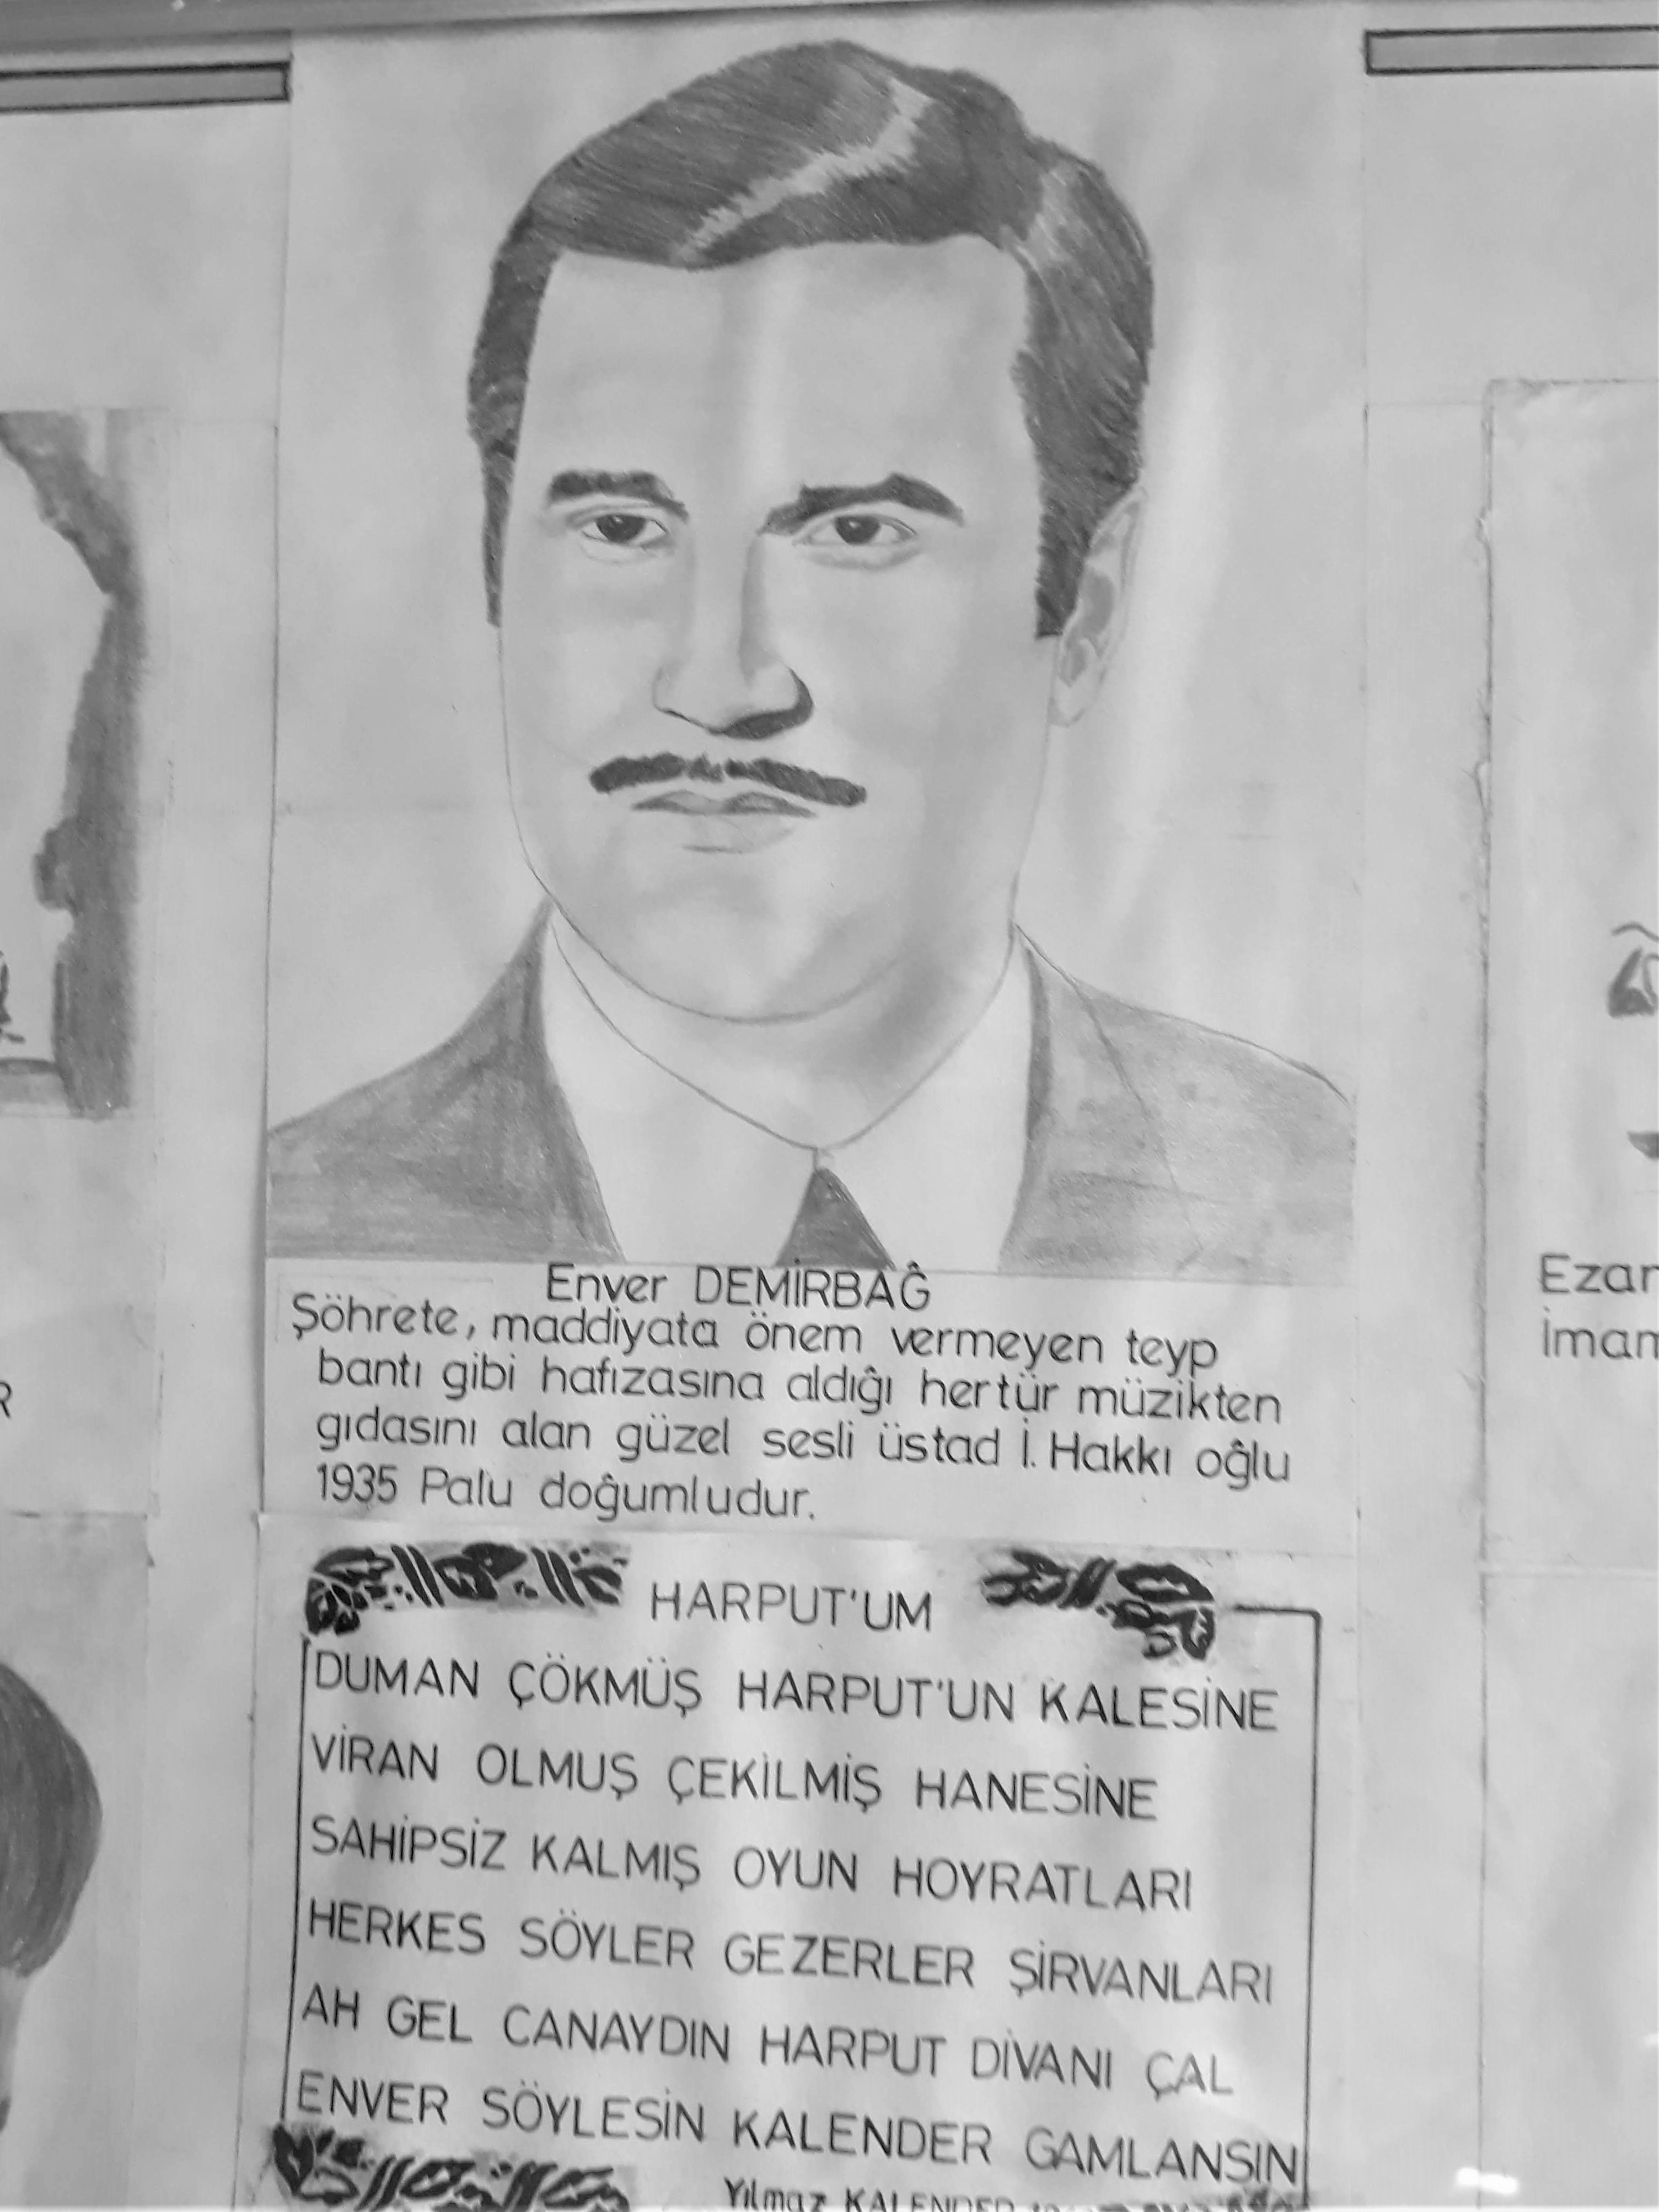 Enver DEMİRBAĞ
Şöhrete, maddiyata önem vermeyen teyp
bantı gibi hafızasına aldığı hertür müzikten
gıdasını alan güzel sesli üstad İ. Hakkı oğlu
1935 Palu doğumludur.
HARPUT'UM
DUMAN ÇÖKMÜŞ HARPUT'UN KALESİNE
VİRAN OLMUŞ ÇEKİLMİŞ HANESİNE
SAHİPSİZ KALMIŞ OYUN HOYRATLARI
HERKES SÖYLER GEZERLER ŞİRVANLARI
AH GEL CANAYDIN HARPUT DİVANI ÇAL
ENVER SÖYLESİN KALENDER GAMLANSIN
Yılmaz KALENDER
R
Ezan
İmam